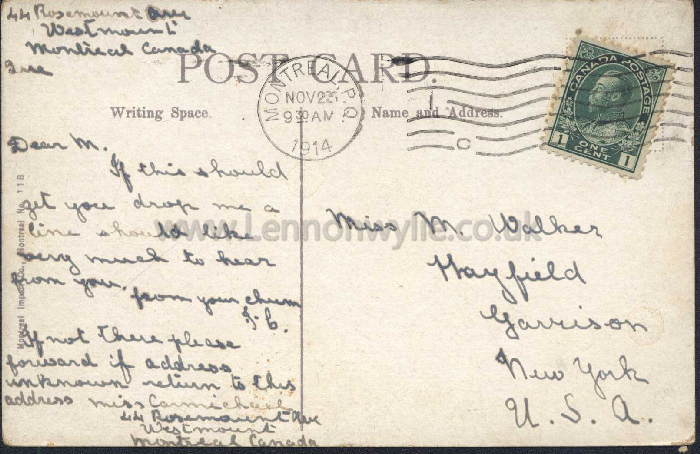 44 Rosemount Ave
Westmount
Montreal Canada
POST CARD.
MONTREAL, P.Q.
NOV 23
9 30 AM
1914
CANADA POSTAGE
1 ONE CENT 1
Writing Space.
Name and Address.
Dear M.
If this should
get you drop me a
line should like
very much to hear
from you.
from your chum
If not there please
forward if address
unknown return to this
address miss Carmichael
44 Rosemount Ave
Westmount
Montreal Canada
Miss M. Walker
Hayfield
Garrison
New York
U. S. A.
www.Lennonwylie.co.uk
Montreal No. 118